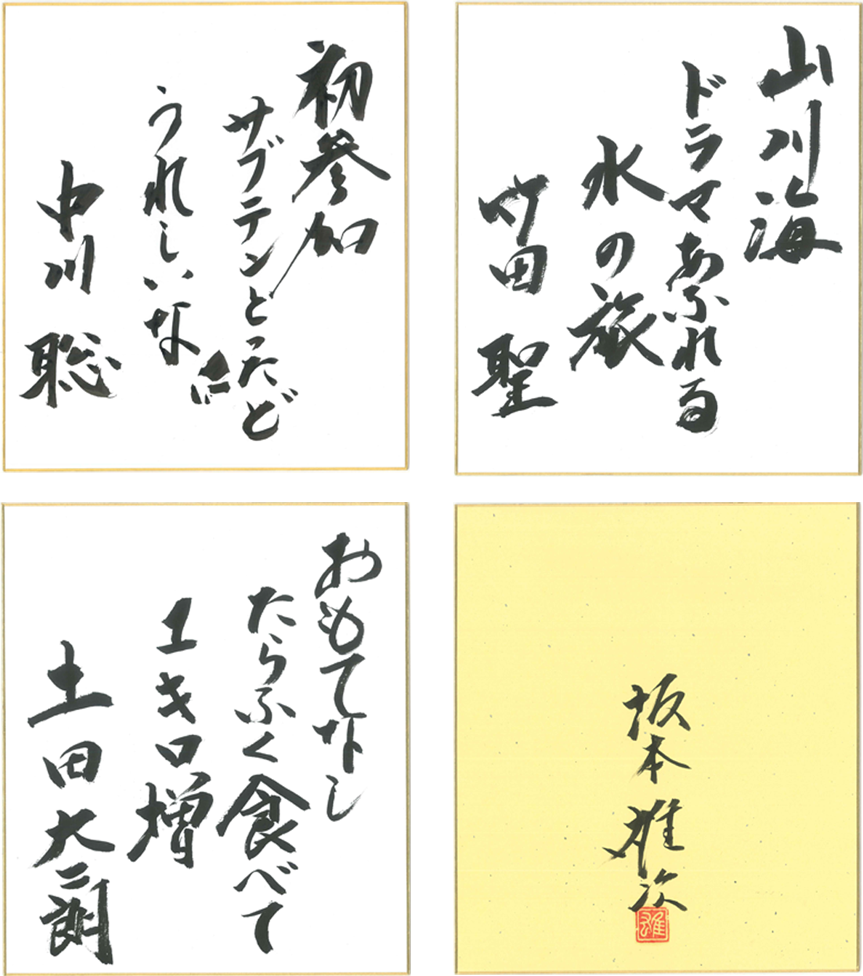 初参加
サブテンとったど
うれしいな
中川 聡
山川海
ドラマあふれる
水の旅
竹田 聖
おもてなし
たらふく食べて
1キロ増
土田大二朗
坂本雄次
雄